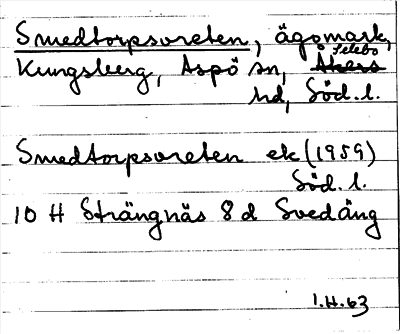 Smedtorpsvreten, ägomark,
Kungsberg, Aspö sn, Åkers Selebo
hd, Söd. l.
Smedtorpsvreten ek (1959)
Söd. l.
10 H Strängnäs 8 d Svedäng
1.H.63